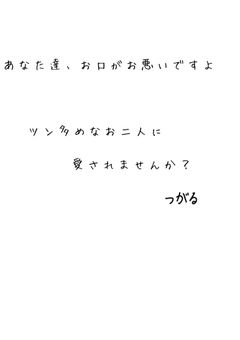 あなた達、お口がお悪いですよ
ツン多めなお二人に
愛されませんか？
つがる